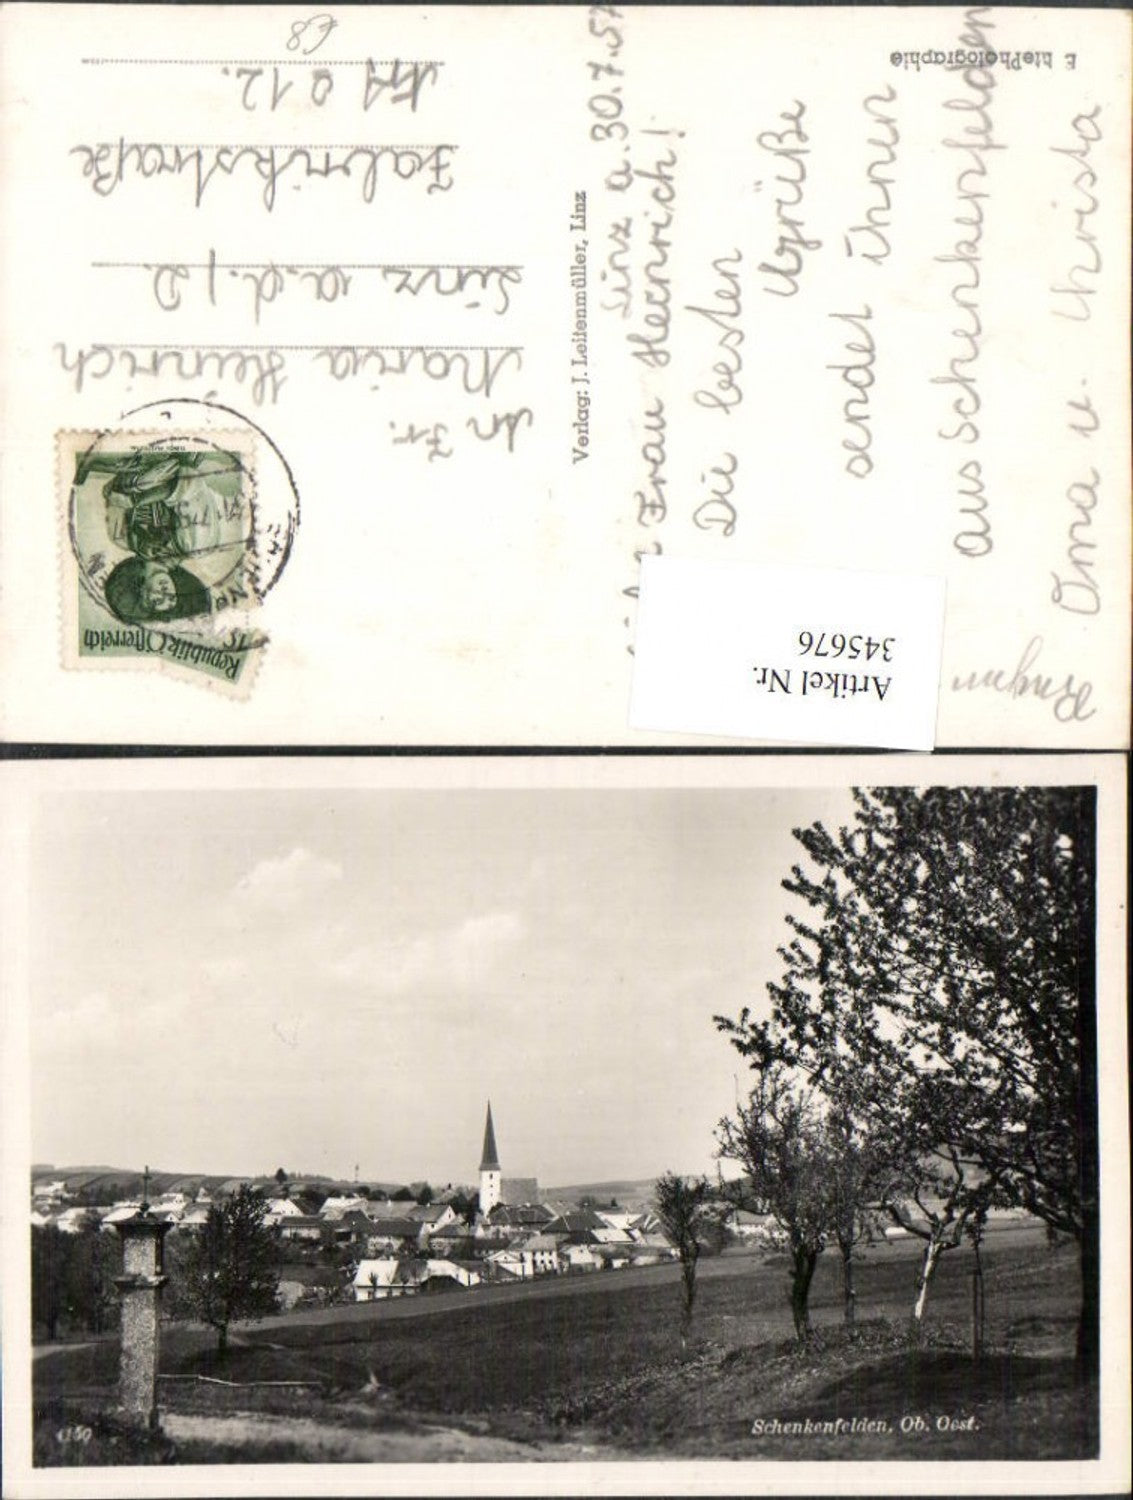 Linz a. 30.7.57
Frau Heinrich!
Die besten
Grüße
sendet ihnen
aus Schenkenfelden
Oma u. Christa
Verlag: J. Leitenmüller, Linz
EchtePhotographie
An Fr.
Maria Heinrich
Linz a.d./D.
Fabrikstraße
Nr.
12.
68
Republik Österreich
Artikel Nr.
345676
Schenkenfelden, Ob. Oest.